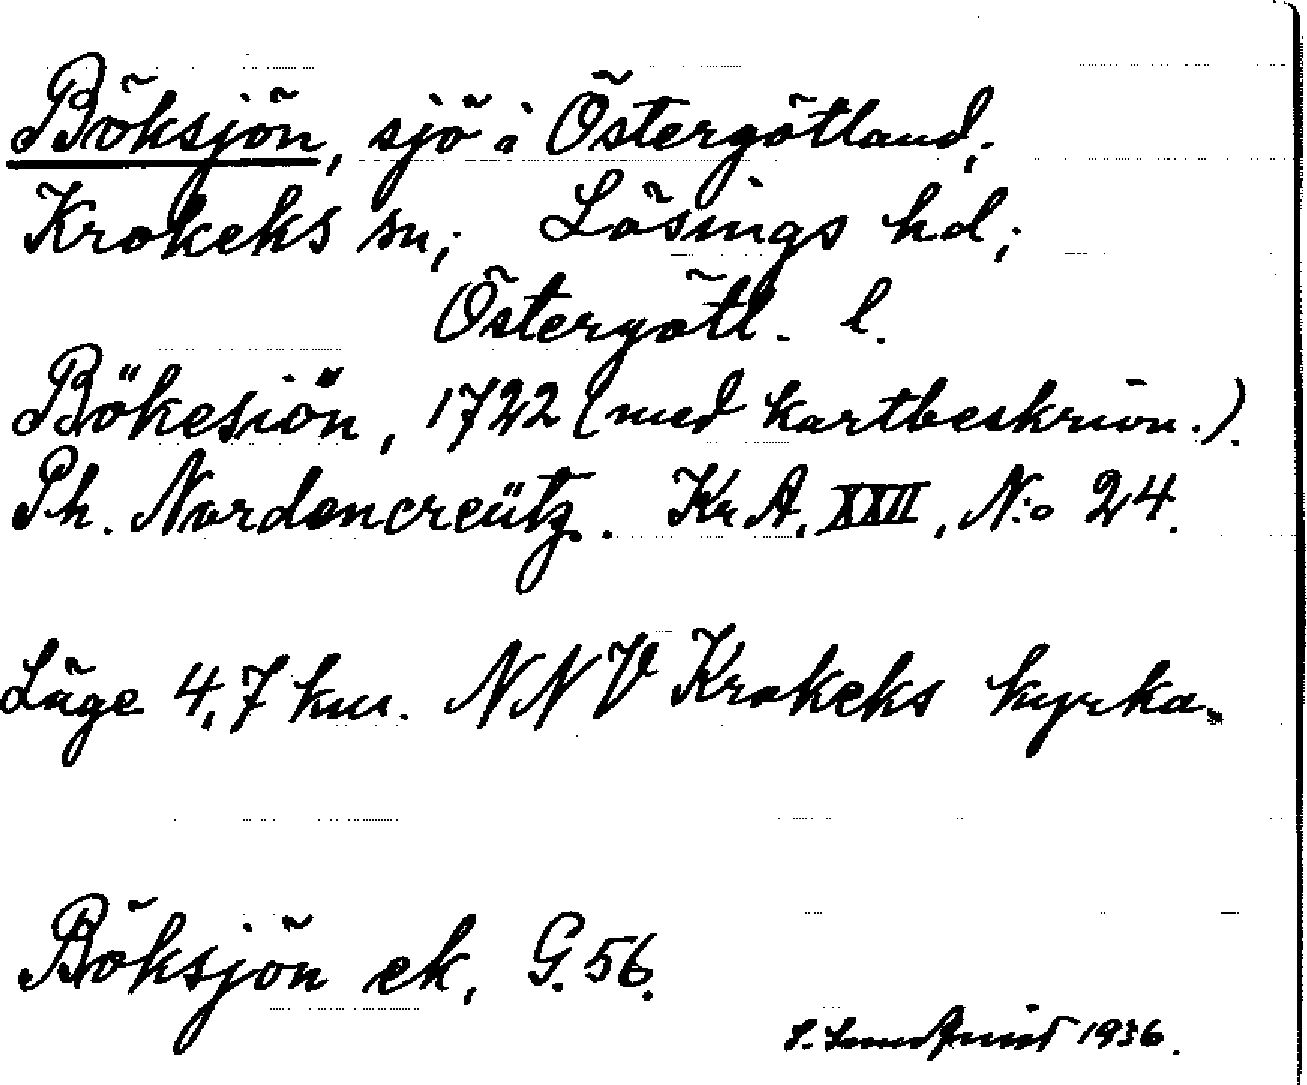 Böksjön, sjö i Östergötland;
Krokeks sn; Lösings hd;
Östergötl. l.
Bökesiön, 1722 (med kartbeskrivn.).
Ph. Nordencreütz. Kr A. XXII, N:o 24.
Läge 4,7 km. NNV Krokeks kyrka.
Böksjön ek, G. 56.
S. Lundquist 1936.